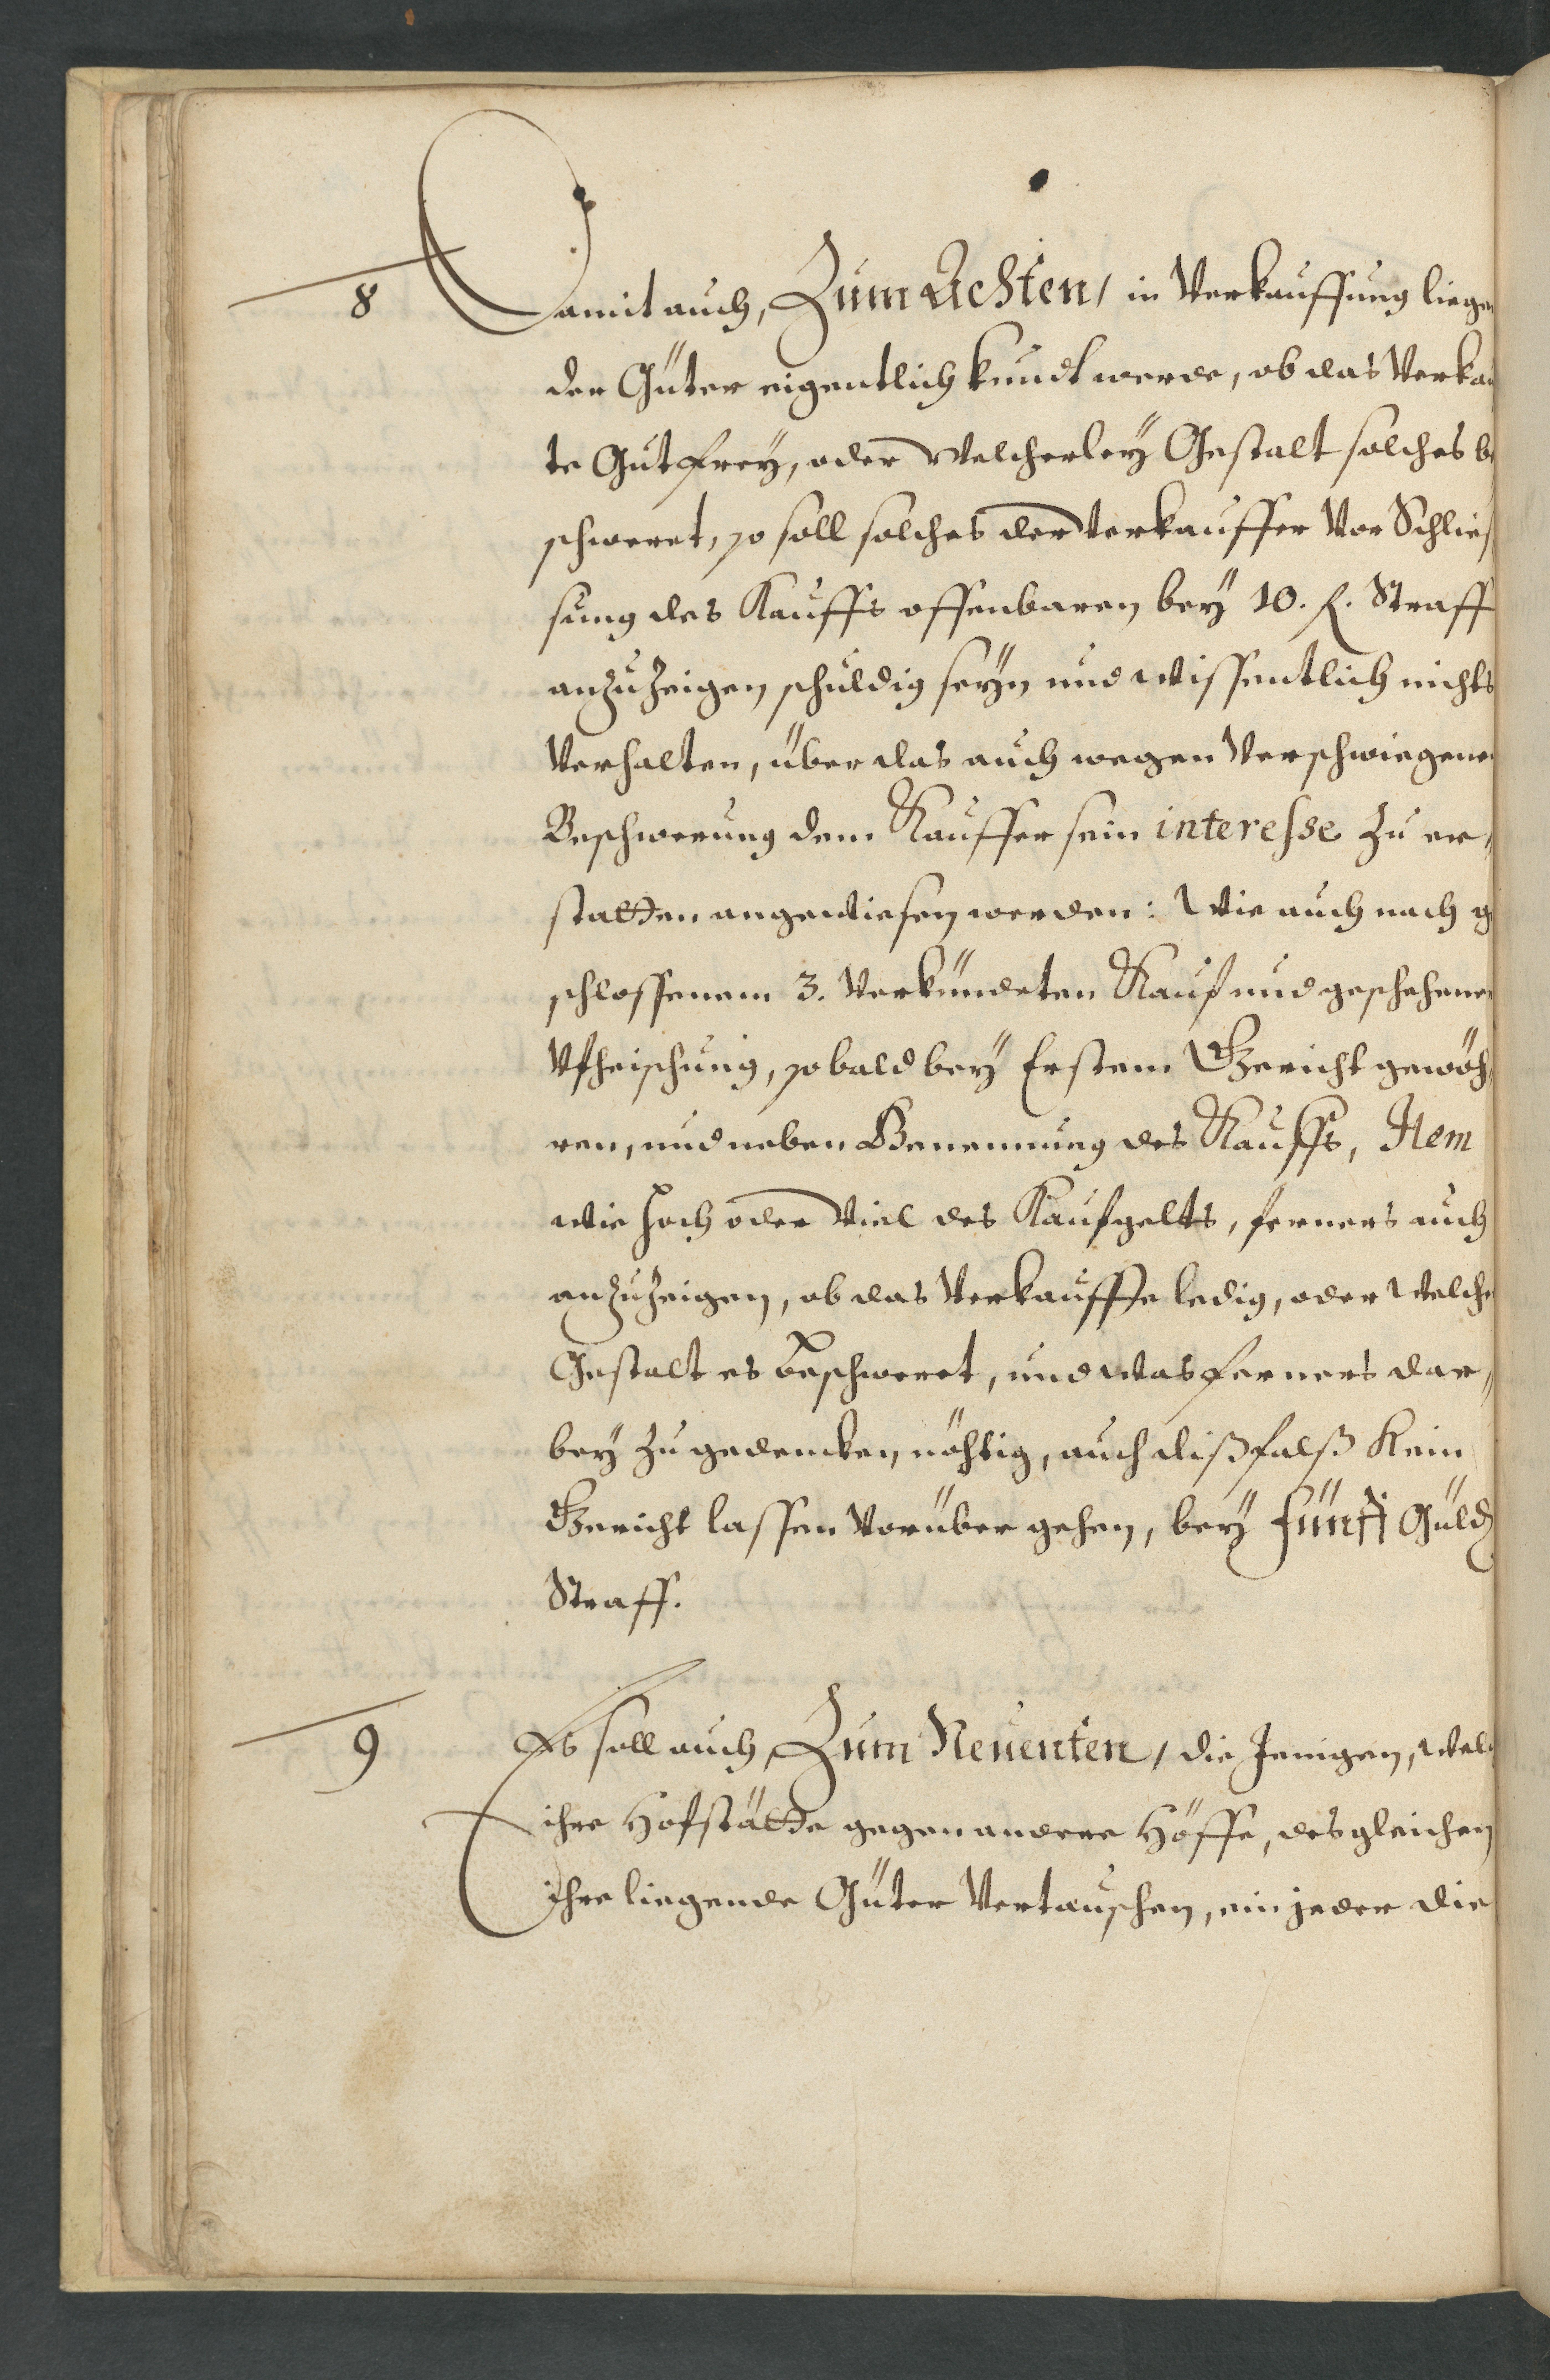 8
Damit auch, Zum Achten, in Verkauffung liegen
der Güter eigentlich kundt werde, ob das Verkau
te Gut frey, oder Welcherley Gestalt solches be
schweret, so soll solches der Verkauffer Vor Schlies
sung des Kauffs offenbaren bey 10. f. Straff
anzuzeigen schuldig seyn und wissentlich nichts
Verhalten, über das auch wegen Verschwiegener
Beschwerung dem Kauffer sein interesse zu er,
statten angewiesen werden: Wie auch nach ge
schlossenem 3. Verkündeten Kauf und geschehener
Ufheischung, sobald bey Erstem Gericht gewöh
ren, und neben Benennung des Kauffs, Item
wie hoch oder Viel des Kaufgelts, ferners auch
anzuzeigen, ob das Verkauffte ledig, oder Welche
Gestalt es beschweret, und was ferners dar,
bey zu gedencken nöhtig, auch dißfalß Kein
Gericht lassen Vorüber gehen, bey fünff Güld
Straff.
9
Es soll auch, Zum Neuenten, die Jenigen, Welc
ihre Hofstätte gegen andere Höffe, desgleichen
Ihre liegende Güter Vertauschen, ein jeder die